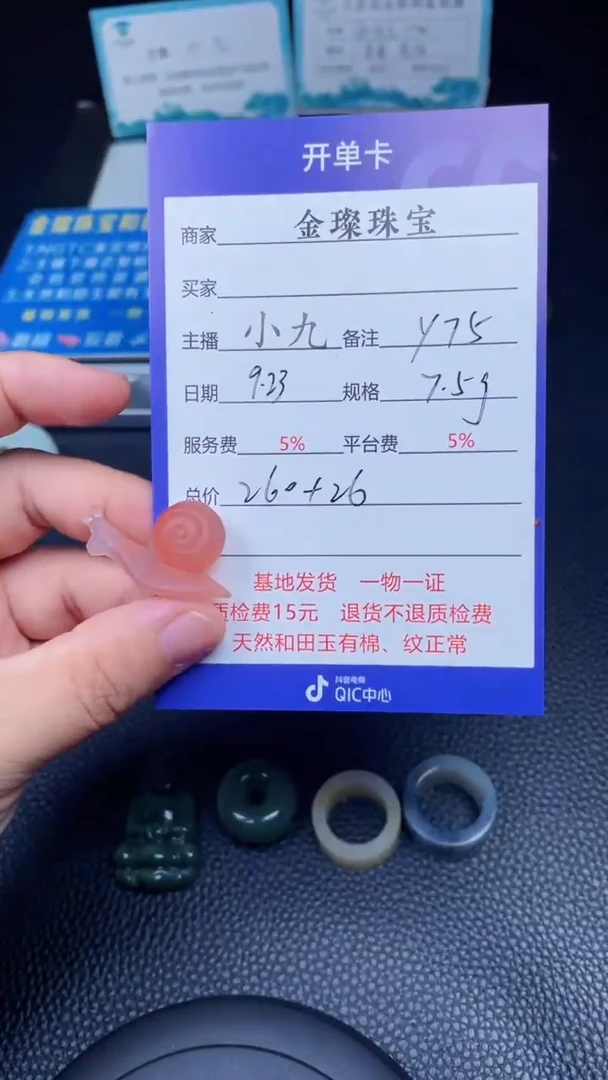 开单卡
商家 金璨珠宝
买家
主播 小九 备注 Y75
日期 9.23 规格 7.5g
服务费 5% 平台费 5%
总价 260+26
基地发货 一物一证
质检费15元 退货不退质检费
天然和田玉有棉、纹正常
抖音电商
QIC中心
金璨珠宝